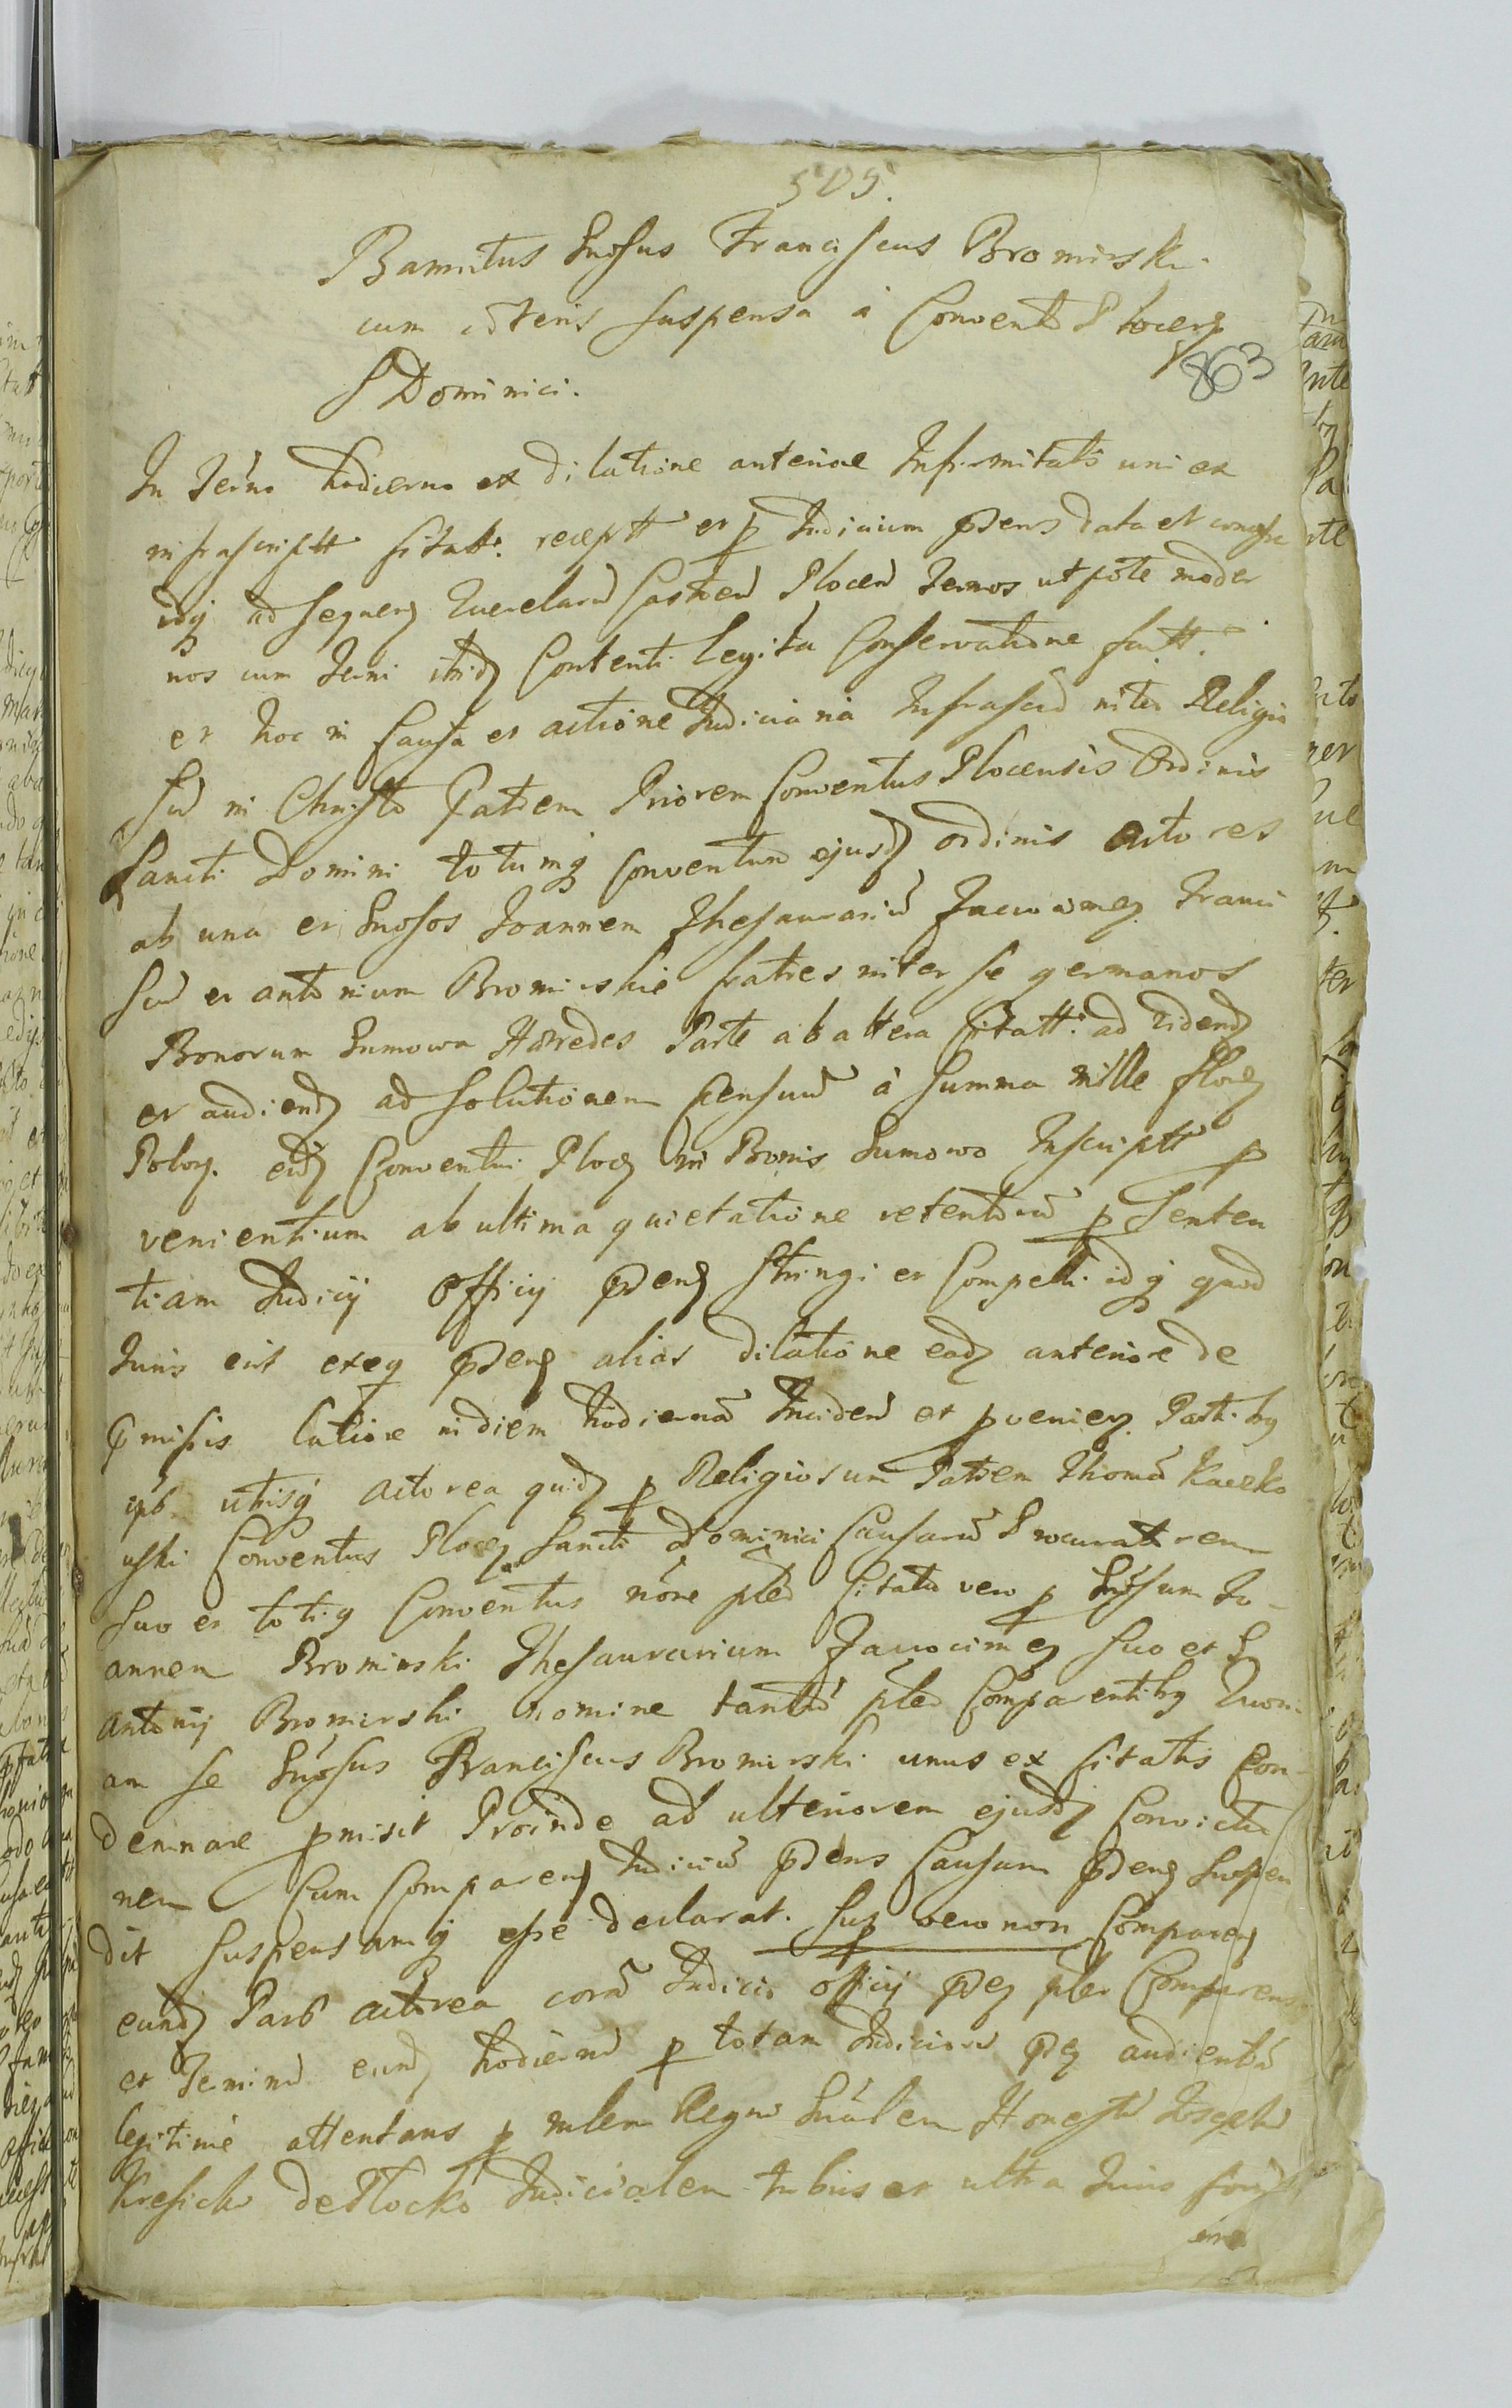 505.
Bannitus Gnosus Franciscus Bromirski
cum cæteris suspensa à Conventu Plocen
S Dominici.
863
In Termo hodierno ex dilatione anteriore Infirmitatis uni ex
infrascriptt citatt. receptt et p Judicium pdens data et concessa
idq ad sequen Querelarū Castren Plocen Termos utpote moder
nos cum Termi itid Contenti legitta Conservatione factt.
et hoc in Causa et actione Judiciaria Infrascrū inter Religio
sū in Christo Patrem Priorem Conventus Plocensis Ordinis
Sancti Domini totumq Conventum ejusd ordinis actores
ab una et Gnosos Joannem Thesaurariū Zawaimen Franci
scū et antonium Bromirskie fratres inter se germanos
Bonorum Sumowa Hæredes Parte ab altera Citatt. ad vidend
et audiend ad solutionem Censuū à summa mille floen
Polon. eid Conventui Plocen in Bonis Sumowo Inscriptt p
venientium ab ultima quietatione retentorū p Senten
tiam Judicij Officij pden stringi et Compelli idq quod
Juris erit exeq pden alias dilatione ead anteriore de
pmissis latiore in diem hodiernā Inciden et pvenien Partibg
ipb utrisq actorea quid p Religiosum Patrem Thomā Kaczko
wski Conventus Plocen Sancti Dominici Causarū Procuratorem
suo et totig Conventus nōne pler Citata vero p Gnosum Jo-
annem Bromirski Thesaurarium Zawocimen suo et G
antonij Bromirski nomine tantū pler Comparentibg Quoni
am se Gnosus Franciscus Bromirski unus ex citatis Con-
demnare pmisit Proinde ad ulteriorem ejusd Convictio
nem Cum Comparen Judiciū pdens Causam pden Suspen
dit suspensamq esse declarat. Sup vero non Comparen
eund Pars actorea corā Judicio officij pden pler Comparens
et Terminū eund hodiernū p totam Judiciorū pden audientiā
legitime attentans p mlem Regnī Gnālem Honestū Josephū
Kresicki de Plocko Judicialem trabus et ultra Juris for